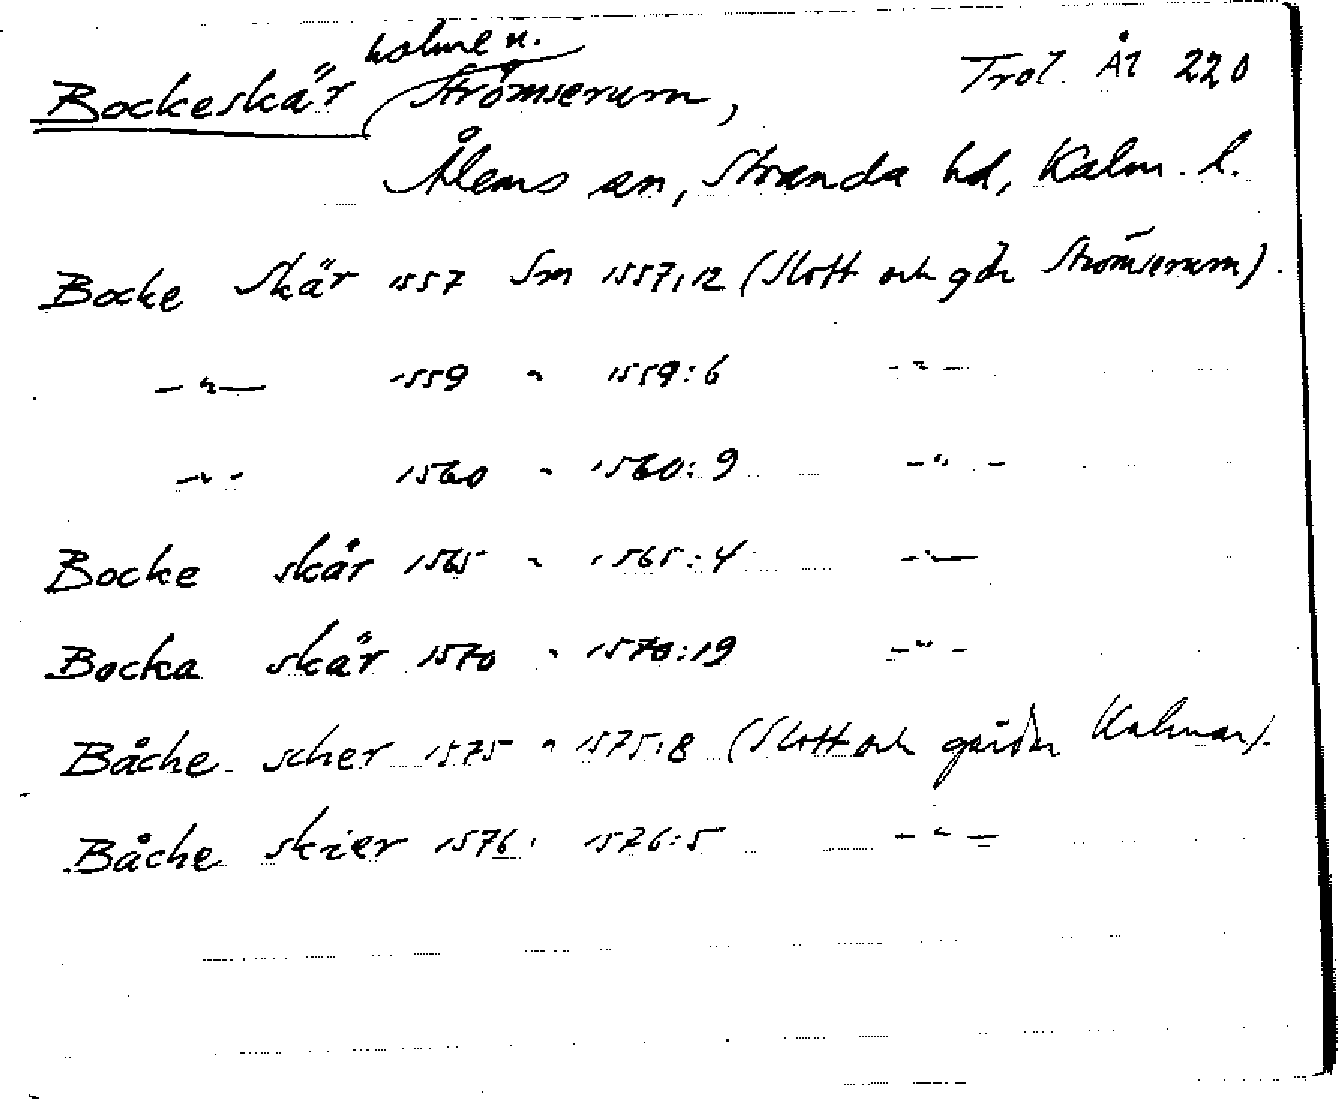 Bockeskär holme u. Strömserum, Trol. Ål 220
Ålems sn, Stranda hd, Kalm. l.
Bocke Skär 1557 Sm 1557,12 (Slott och gdr Strömserum).
—"— 1559 " 1559:6 —"—
—"— 1560 " 1560:9 —"—
Bocke skår 1565 " 1565:4 —"—
Bocka skär 1570 " 1570:19 —"—
Båche scher 1575 " 1575:8 (Slott och gårdar Kalmar).
Båche skier 1576 " 1576:5 —"—